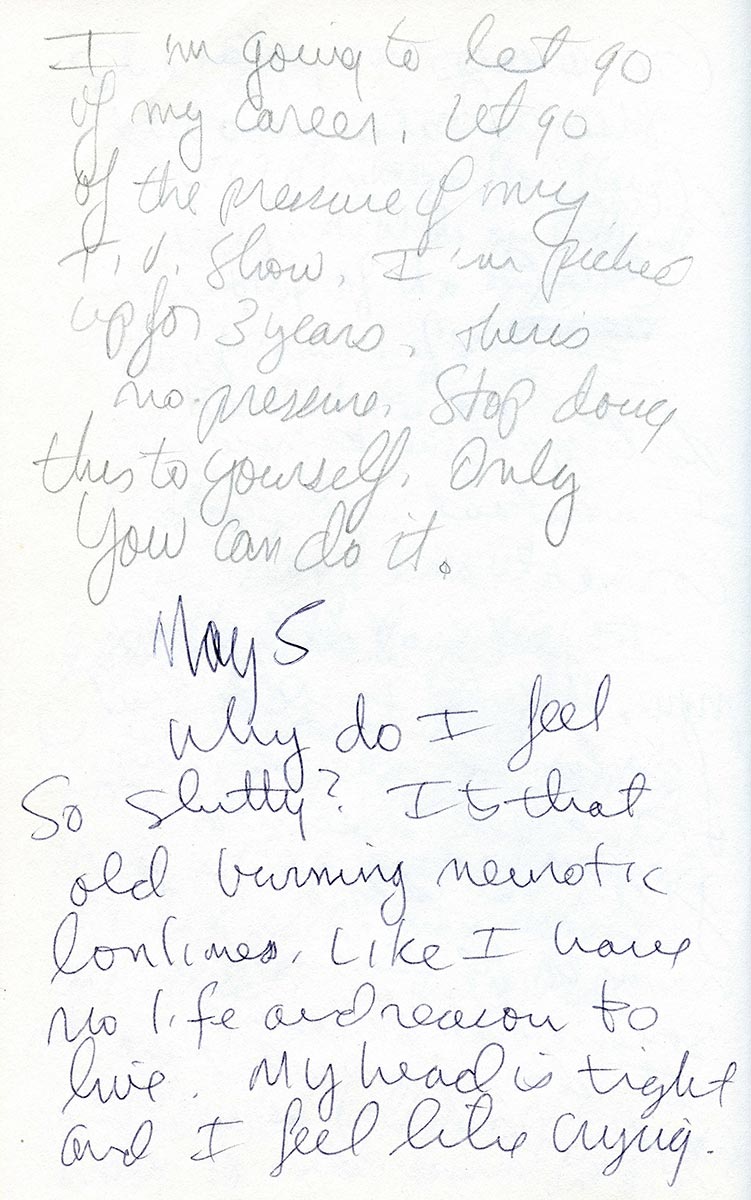 I'm going to let go
of my career. Let go
of the pressure of my
T.V. Show, I'm picked
up for 3 years, there's
no pressure. Stop doing
this to yourself. Only
You can do it.
May 5
Why do I feel
So slutty? It's that
old burning neurotic
lonliness. Like I have
no life and reason to
live. My head is tight
and I feel like crying.